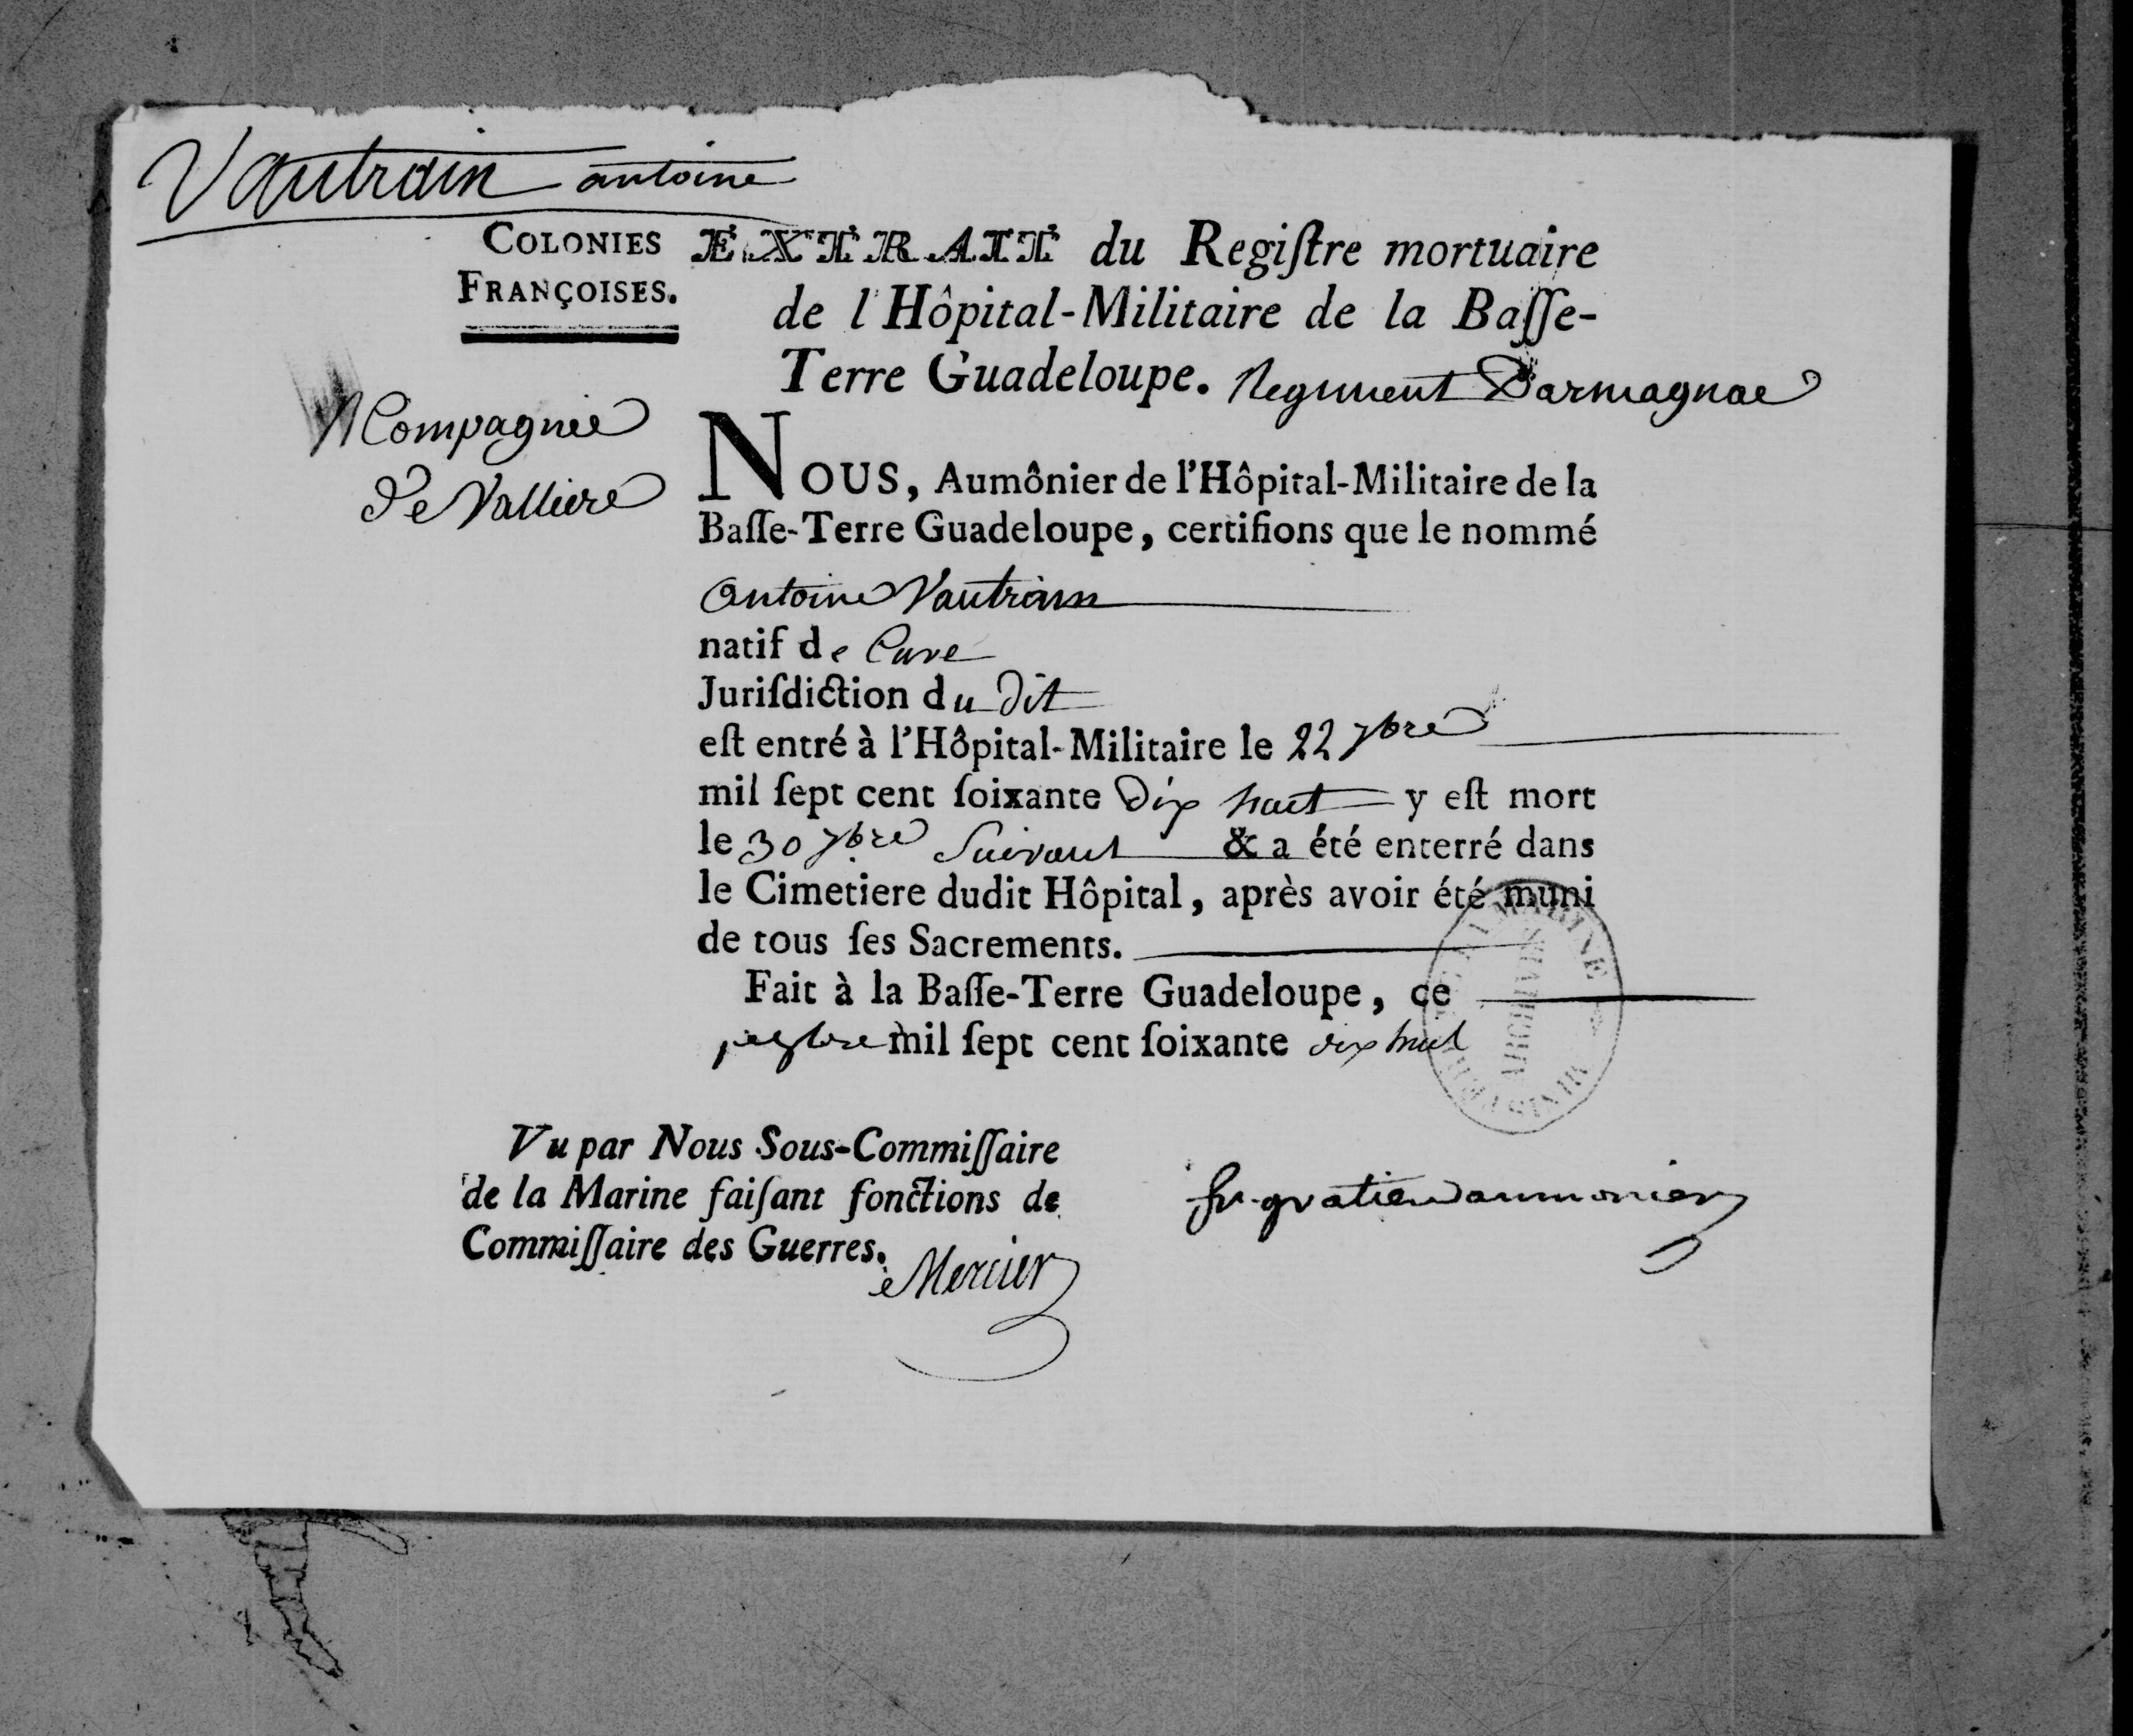 Vautrain antoine
COLONIES
FRANÇOISES.
EXTRAIT du Regiſtre mortuaire
de l'Hôpital-Militaire de la Baſſe-
Terre Guadeloupe. Regiment Darmagnac
Compagnie
De Valliere
NOUS, Aumônier de l'Hôpital-Militaire de la
Baſſe-Terre Guadeloupe, certifions que le nommé
Antoine Vautrain
natif de Cuve
Juriſdiction du Dit
eſt entré à l'Hôpital-Militaire le 22 7bre
mil ſept cent ſoixante Dix huit y eſt mort
le 30 7bre Suivant & a été enterré dans
le Cimetiere dudit Hôpital, après avoir été muni
de tous ſes Sacrements.
Fait à la Baſſe-Terre Guadeloupe, ce
mil ſept cent ſoixante dix huit
MARINE
ARCHIVES
Vu par Nous Sous-Commiſſaire
de la Marine faiſant fonctions de
Commiſſaire des Guerres.
Mercier
fr. gratien aumonier